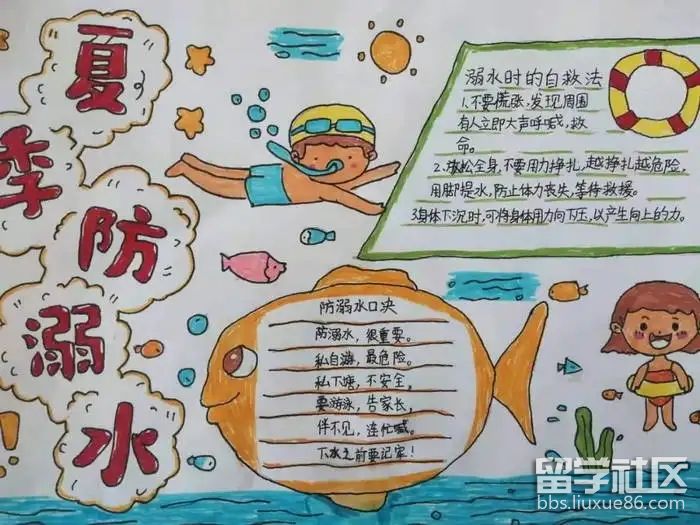 夏季防溺水
溺水时的自救法
1.不要慌张，发现周围
有人立即大声呼喊，救
命。
2.放松全身，不要用力挣扎，越挣扎越危险，
用脚提水，防止体力丧失，等待救援。
3身体下沉时，可将身体用力向下压，以产生向上的力。
防溺水口决
防溺水，很重要。
私自游，最危险。
私下塘，不安全。
要游泳，告家长，
伴不见，连忙喊。
下水之前要记牢！
留学社区
bbs.liuxue86.com